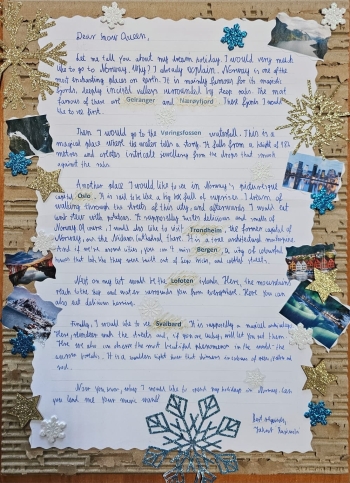 Dear Snow Queen,
Let me tell you about my dream holiday. I would very much
like to go to Norway. Why? I already explain. Norway is one of the
most enchanting places on earth. It is mainly famous for its magical
fiords, deeply incised valleys surrounded by deep water. The most
famous of these are Geiranger and Nærøyfjord. These fiords I would
like to see first.
Then I would go to the Vøringsfossen waterfall. This is a
magical place where the water tells a story. It falls from a height of 182
metres and creates intricate something from the drops that smash
against the rocks.
Another place I would like to see is Norway's picturesque
capital, Oslo. It is said to be like a big box full of surprises. I dream of
walking through the streets of this city, and afterwards I would eat
with potatoes. It supposedly tastes delicious and smells of
Norway. Of course, I would also like to visit Trondheim, the former capital of
Norway, and the Nidaros Cathedral there. It is a true architectural masterpiece
And if we're around there, you can't miss Bergen. A city of colourful
houses that look like they were built out of Lego bricks, and cobbled streets.
Next on my list would be the Lofoten islands. Here, the mountains
reach the sky and water surrounds you from everywhere. Here you can
also eat delicious herring.
Finally, I would like to see Svalbard. It is supposedly a magical archipelago
Here, reindeer walk the streets and, if you are lucky, will let you pet them.
Here we also can observe the most beautiful phenomenon in the world - the
aurora borealis. It is a wonderful light show that shimmers in colours of green, violet and
red.
Now you know, why I would like to spend my holidays in Norway. Can
you lend me your magic
Best regards,